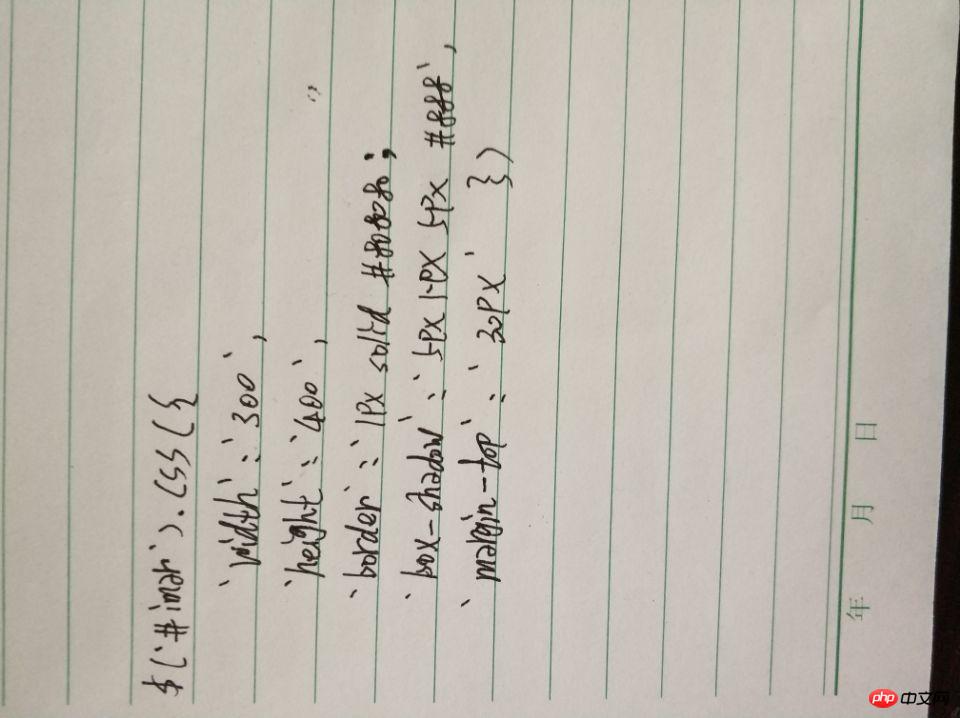 $('#imar').css({
'width':'300',
'height':'400',
'border':'1px solid #808080;
'box-shadow':'5px 1px 5px #888',
'margin-top':'30px' })
年 月 日
php 中文网